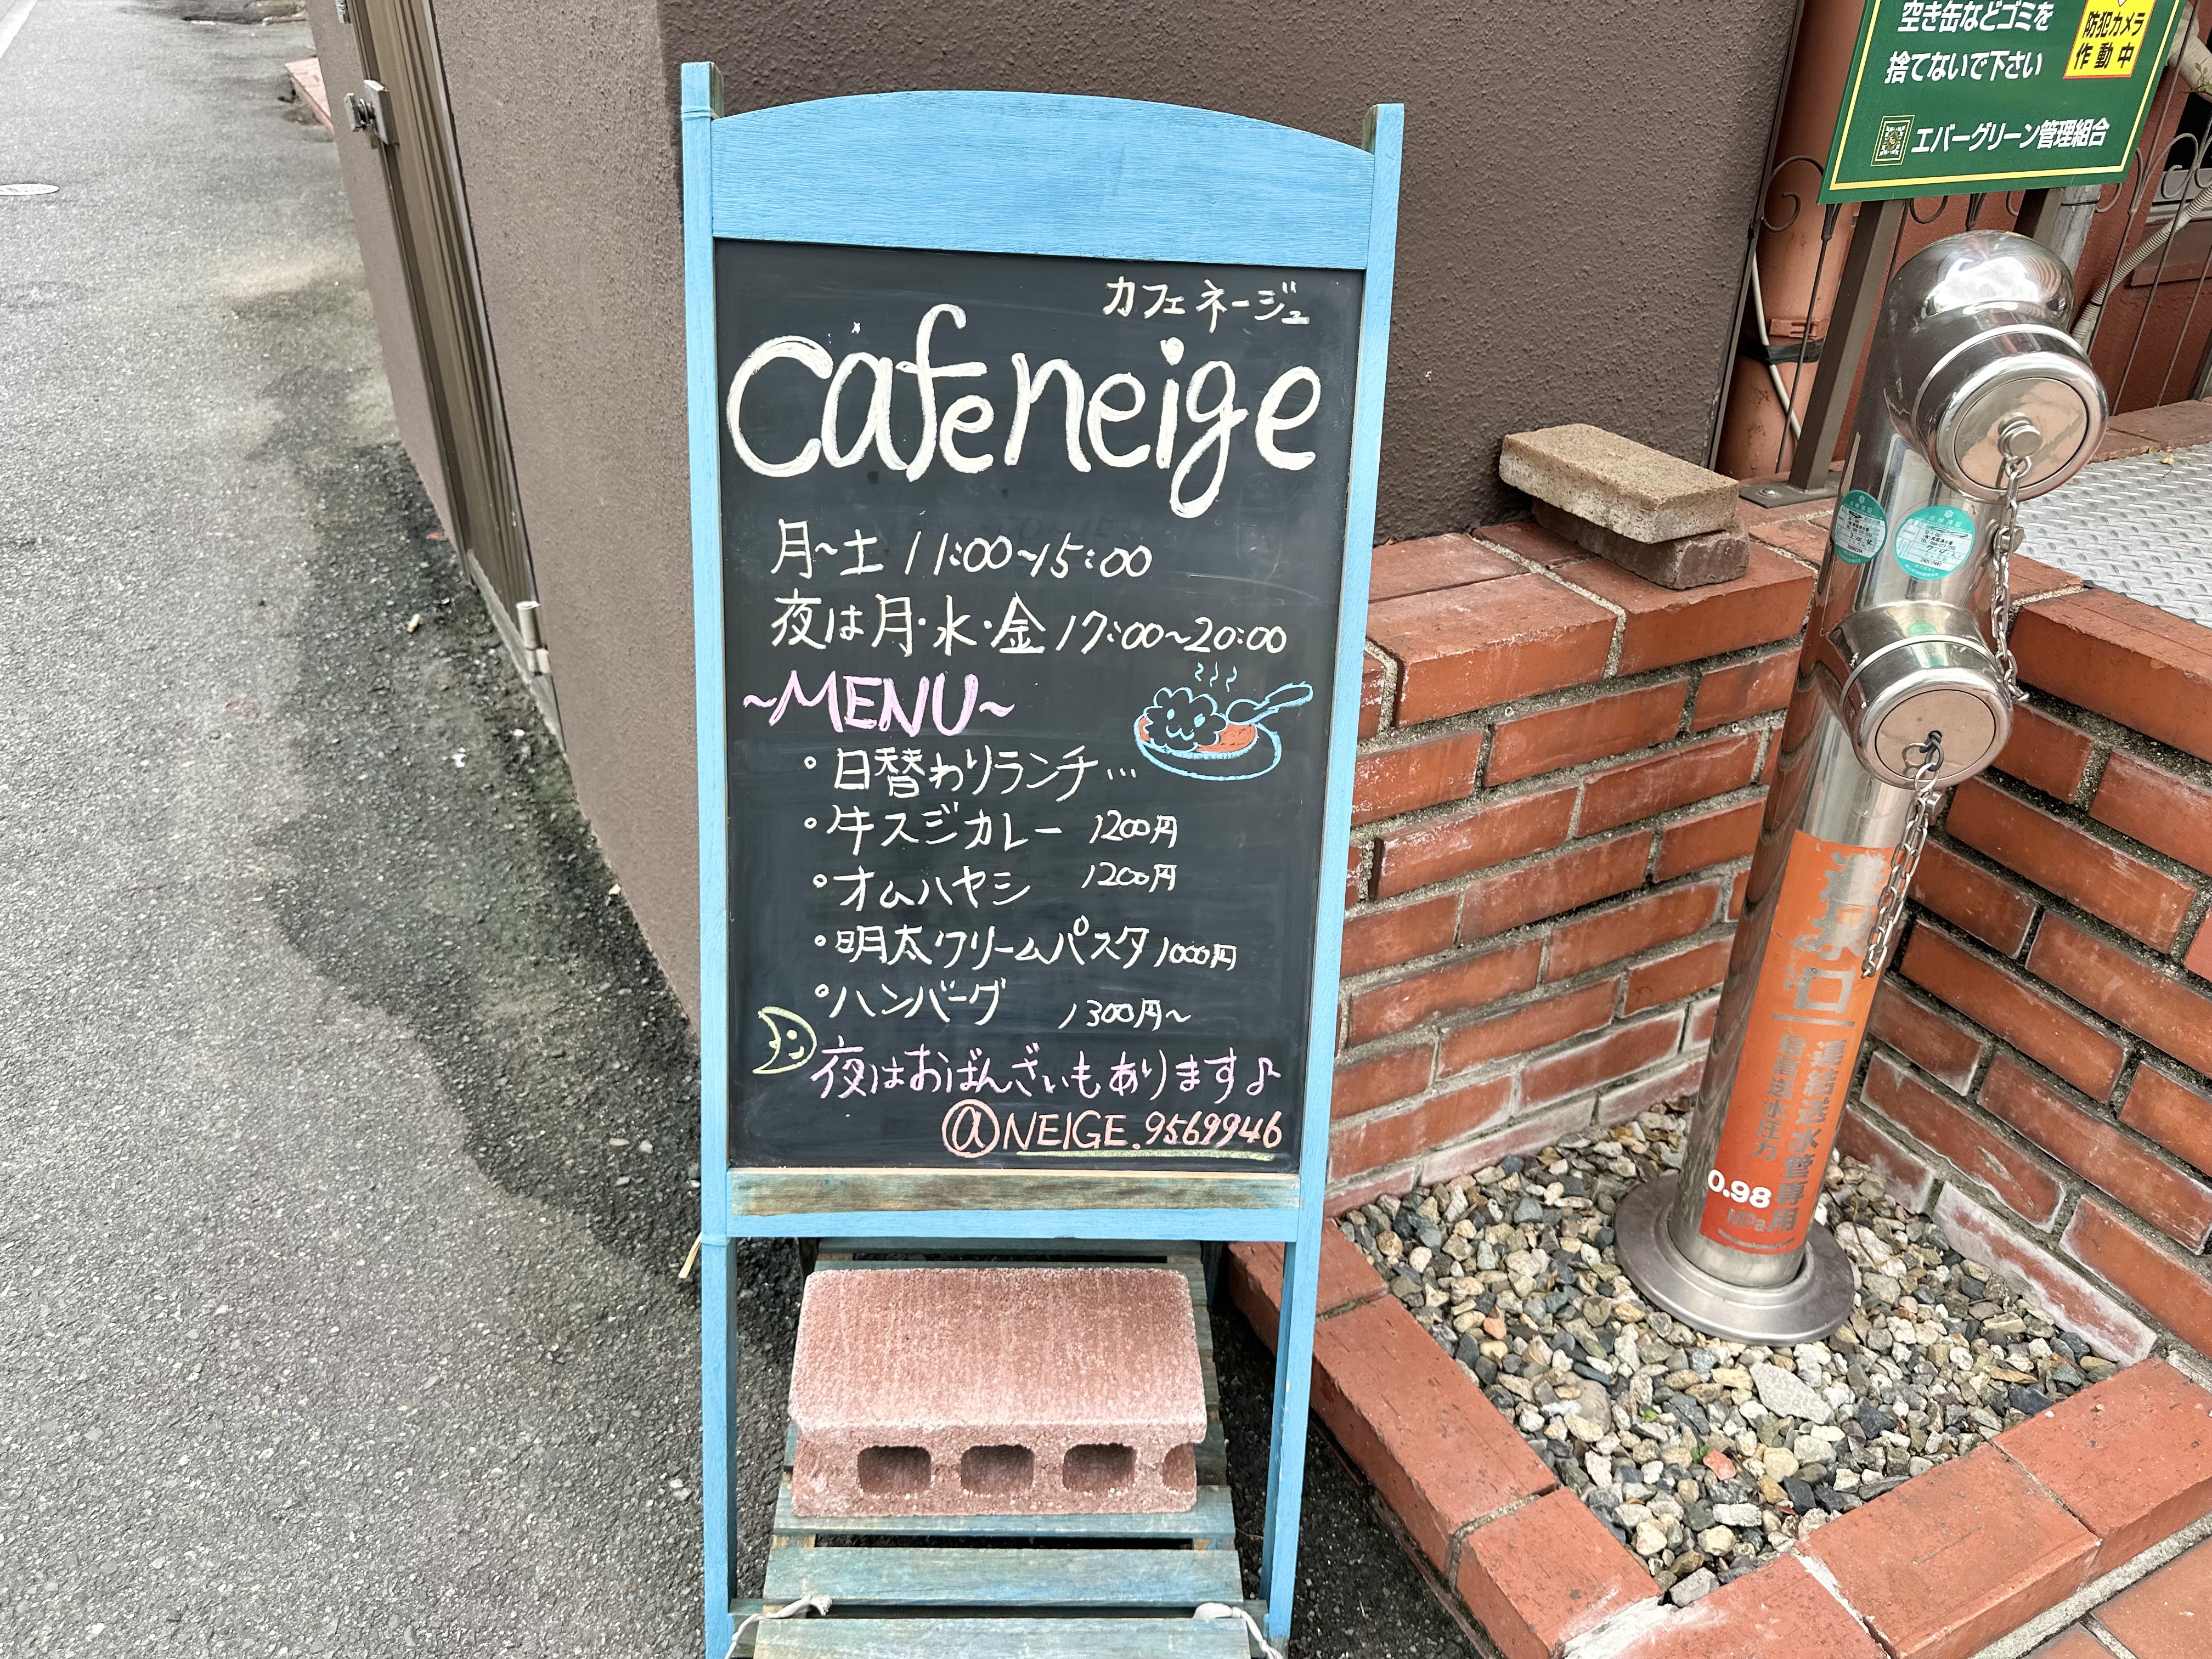 カフェ ネージュ
cafe neige
月〜土 11:00〜15:00
夜は月・水・金 17:00〜20:00
〜MENU〜
・日替わりランチ…
・牛スジカレー 1200円
・オムハヤシ 1200円
・明太クリームパスタ 1000円
・ハンバーグ 1300円〜
夜はおばんざいもあります♪
@NEIGE.9569946
空き缶などゴミを
捨てないで下さい
防犯カメラ
作動中
エバーグリーン管理組合
送水口
連結送水管専用
最高送水圧力
0.98
MPa